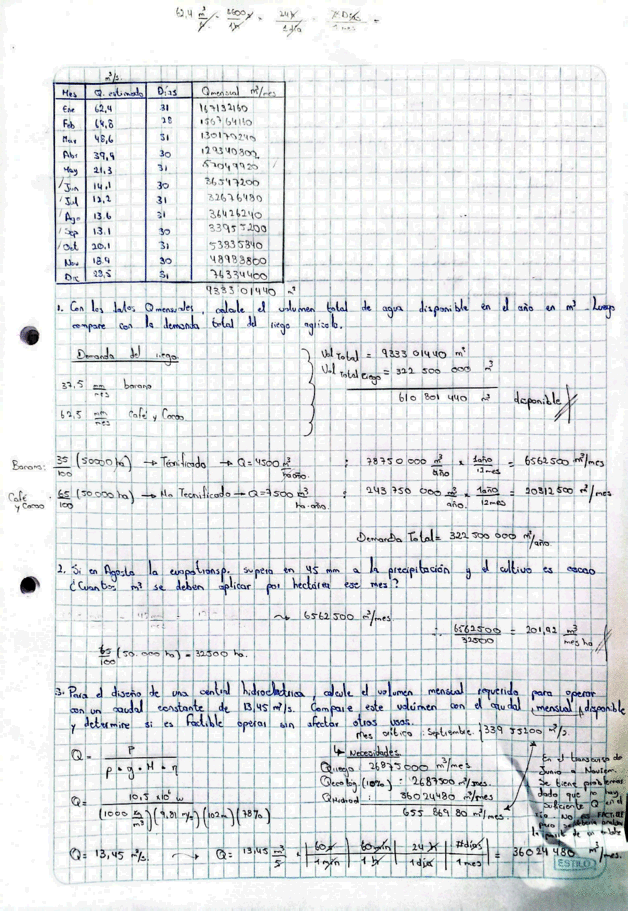 62,4 m³/s · 3600 s/1h · 24h/1día · # Días/1 mes =
m³/s.
Mes Q. estimado Días Qmensual m³/mes
Ene 62,4 31 167132160
Feb 64,8 28 156764160
Mar 48,6 31 130170240
Abr 39,9 30
May 21,3 31 57049920
Jun 14,1 30 36547200
Jul 12,2 31 32676480
Ago 13.6 31 36426240
Sep 13.1 30 33955200
Oct 20,1 31 53835840
Nov 30
Dic 31
9333 01440 m³
1. Con los datos Q mensuales, calcule el volumen total de agua disponible en el año en m³. Luego
compare con la demanda total del riego agrícola.
Demanda del riego
37,5 mm/mes banano
62,5 mm/mes Café y Cacao
Vol Total = 9333 01440 m³
Vol Total Riego = 322 500 000 m³
610 801 440 m³ disponible
Banano: 35/100 (50000 ha) → Tecnificado → Q = 4500 m³/ha·año ; 78750 000 m³/año × 1año/12mes = 6562500 m³/mes
Café y Cacao · 65/100 (50.000 ha) → No Tecnificado → Q = 7500 m³/ha·año. ; 243 750 000 m³/año. × 1año/12mes = 20312 500 m³/mes
Demanda Total = 322 500 000 m³/año
2. Si en Agosto la evapotransp. supera en 45 mm a la precipitación y el cultivo es cacao
¿Cuántos m³ se deben aplicar por hectárea ese mes?
→ 6562500 m³/mes
65/100 (50.000 ha) = 32500 ha.
∴ 6562500/32500 = 201,92 m³/mes ha
3. Para el diseño de una central hidroeléctrica, calcule el volumen mensual requerido para operar
con un caudal constante de 13,45 m³/s. Compare este volumen con el caudal mensual disponible
y determine si es factible operar sin afectar otros usos.
Mes crítico : Septiembre. 339 55200 m³/s.
Q = P/ρ · g · H · η
↳ Necesidades
Qriego : 26875000 m³/mes
Qecológ (10%) : 2687500 m³/mes.
Qhidroel : 36024480 m³/mes
655 869 80 m³/mes.
Q = 10,5 x10⁶ w/(1000 kg/m³)(9,81 m/s)(102m)(78%)
En el transcurso de
Junio a Noviem.
Se tiene problemas
dado que no hay
suficiente Q en el
río
Q = 13,45 m³/s. → Q = 13,45 m³/s · | 60 s/1 min | 60 min/1 h | 24 h/1 día | # días/1 mes | = 36024480 m³/mes.
ESTILO